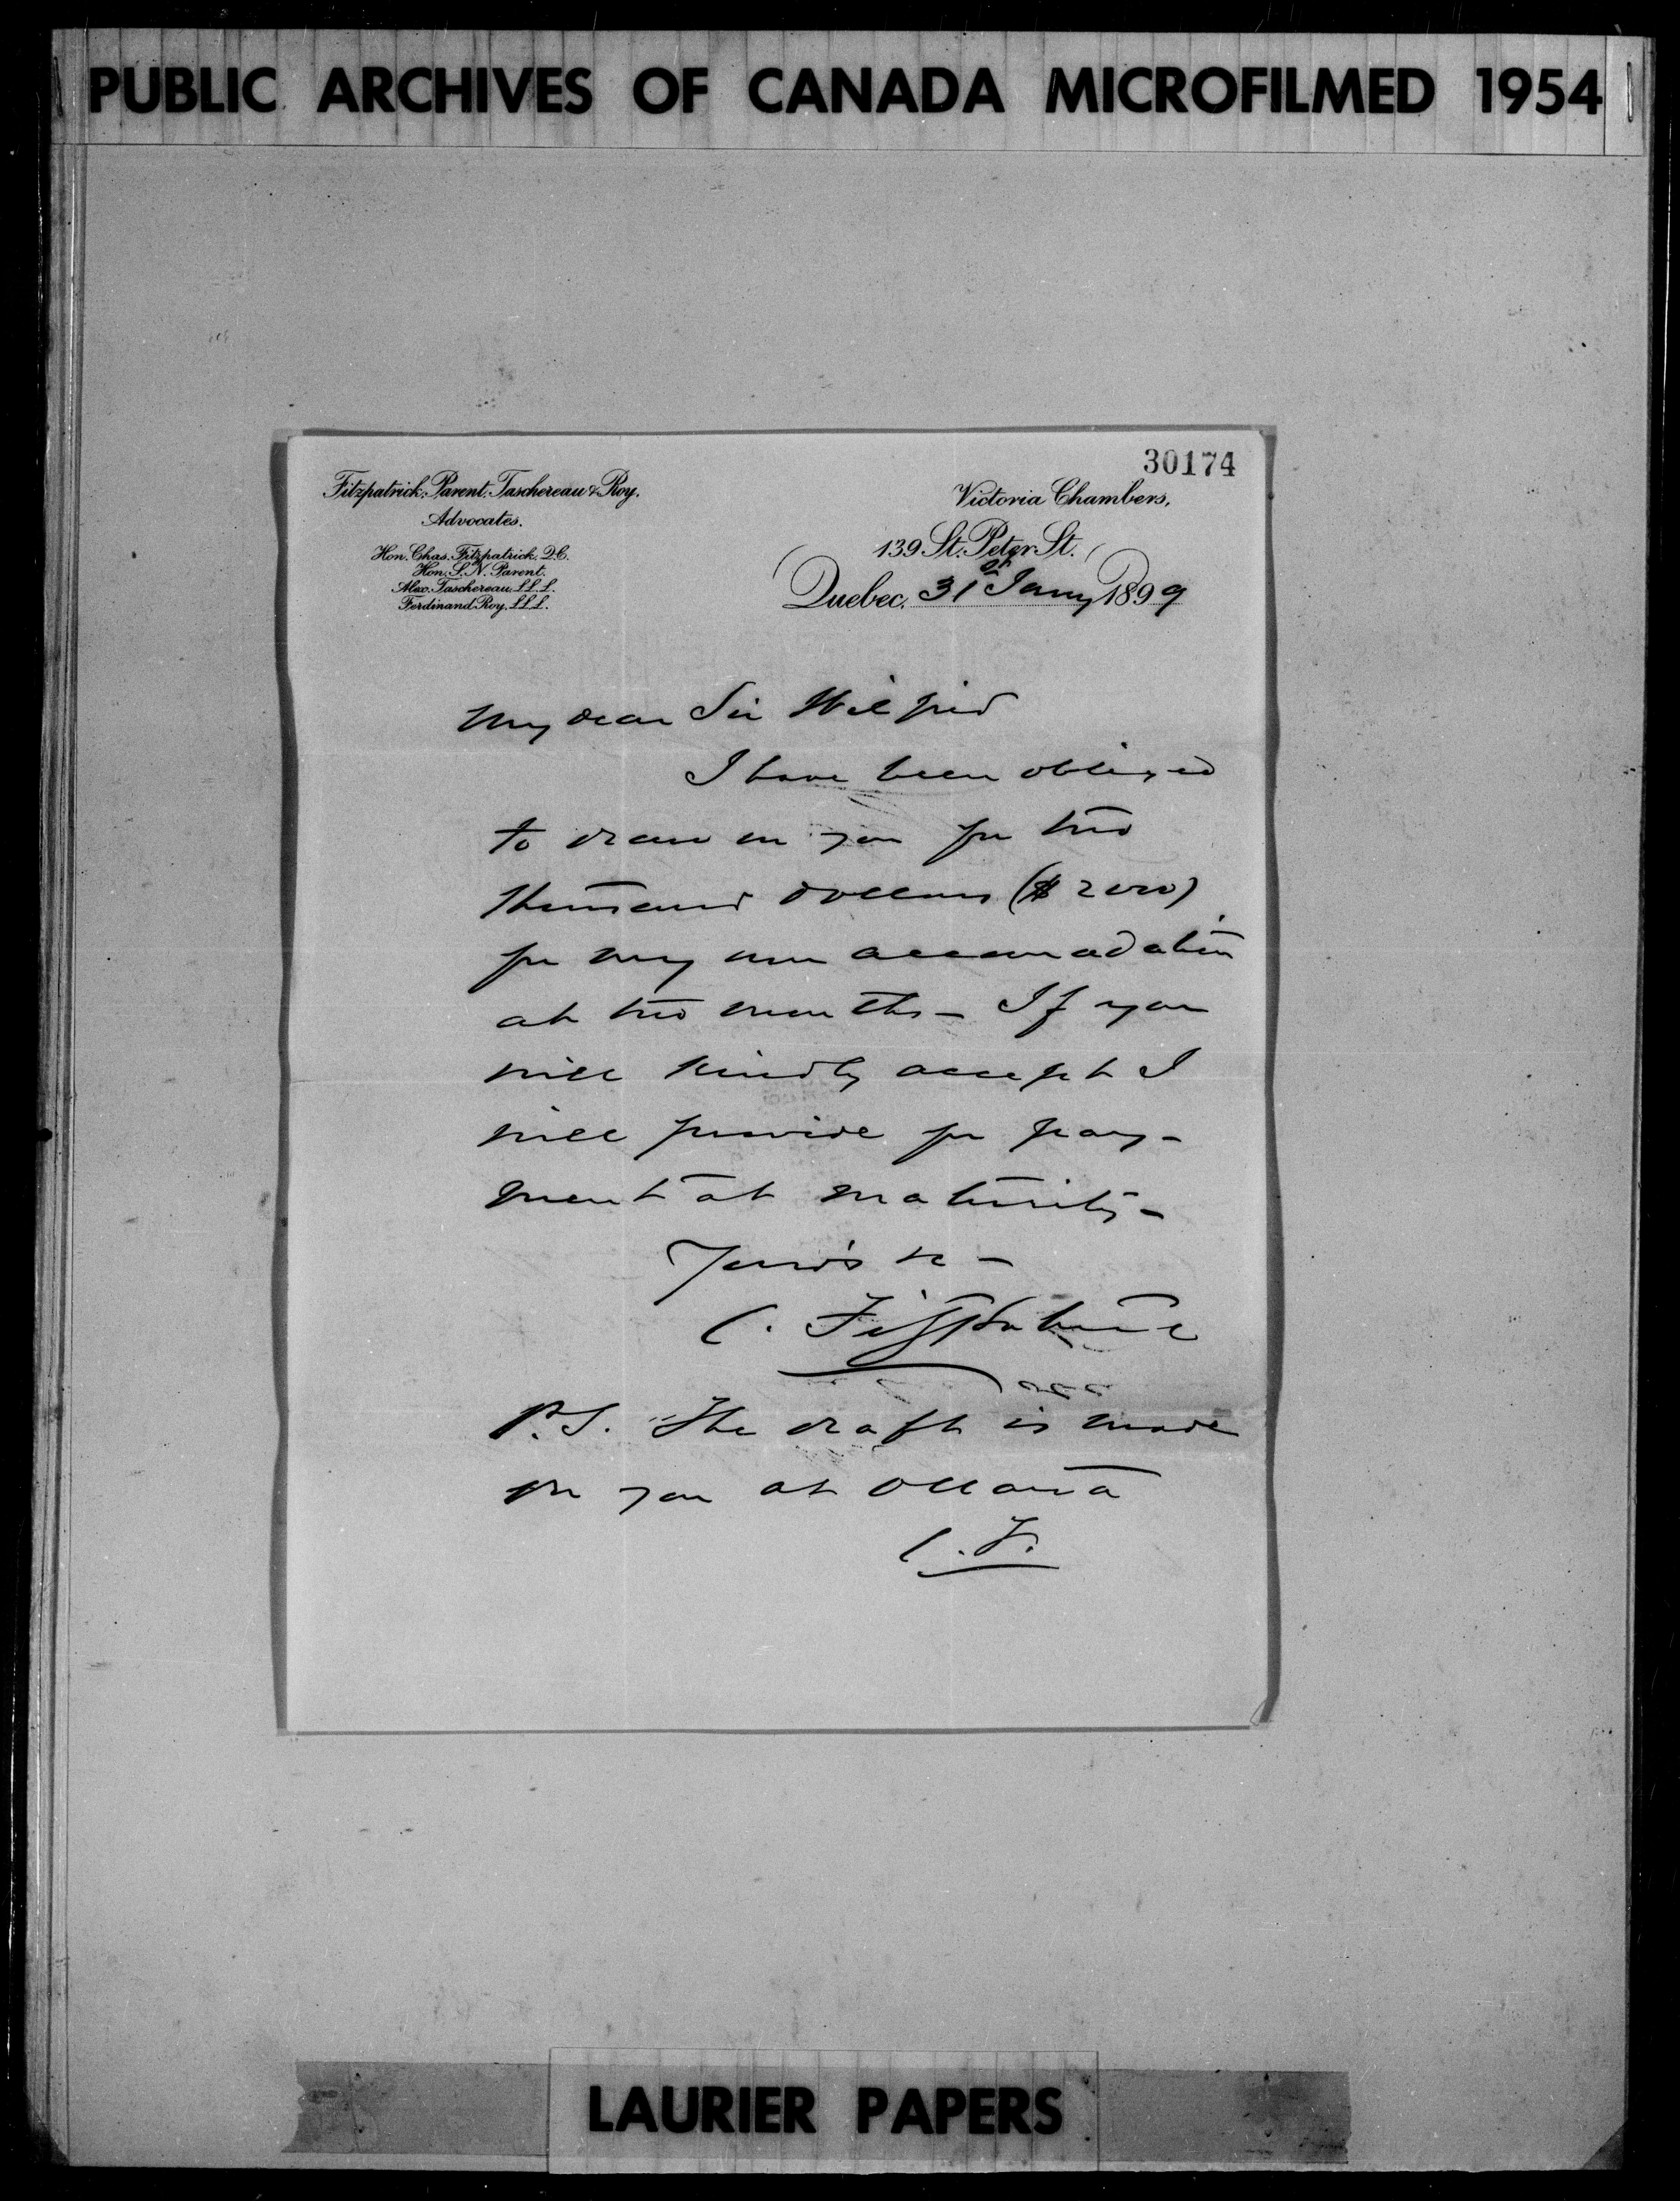 PUBLIC ARCHIVES OF CANADA MICROFILMED 1954
30174
Fitzpatrick, Parent, Taschereau & Roy.
Advocates.
Hon. Chas. Fitzpatrick, Q.C.
Hon. S. N. Parent.
Alex. Taschereau, L.L.L.
Ferdinand Roy, L.L.L.
Victoria Chambers,
139 St. Peter St.
Quebec, 31st Jany 1899
My dear Sir Wilfrid
I have been obliged
to draw on you for two
thousand dollars ($2000)
for my own accomodation
at two months - If you
will kindly accept I
will provide for pay-
ment at maturity -
Yours &c -
C. Fitzpatrick
P.S. The draft is made
on you at Ottawa
C.F.
LAURIER PAPERS